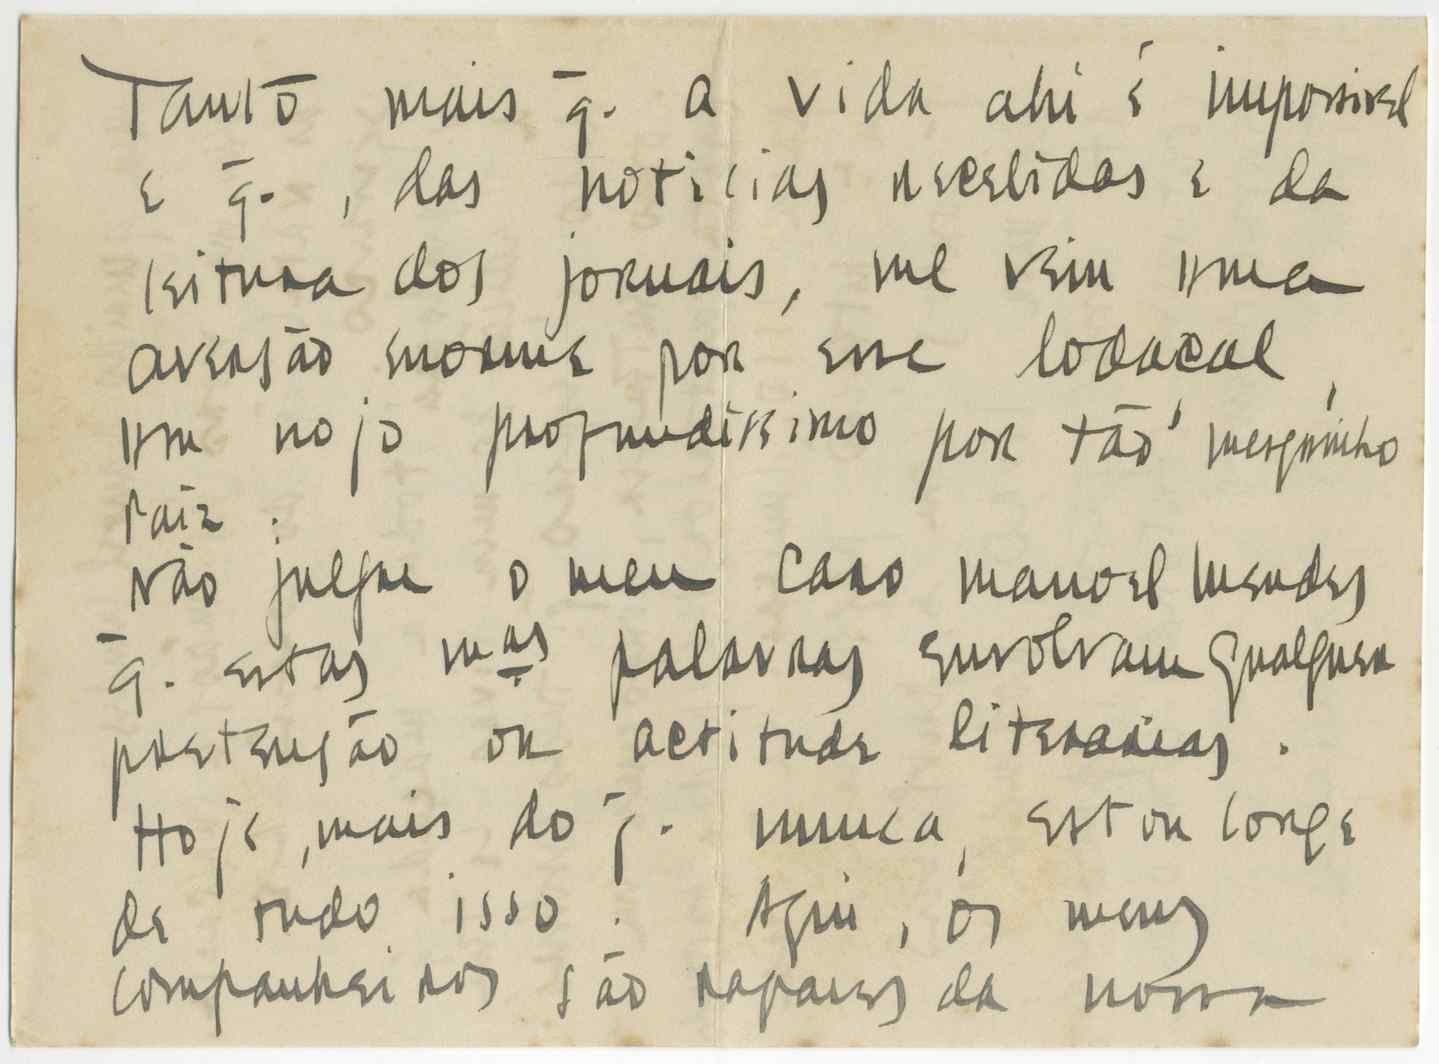 Tanto mais q̄. a vida ahi é impossivel
e q̄. , das noticias recebidas e da
leitura dos jornais, me vem uma
aversão enorme por esse lodaçal,
um nojo profundissimo por tão mesquinho
País.
Não julgue o meu caro Manoel Mendes
q̄. estas mas palavras envolvam qualquer
pretensão ou actitude literarias.
Hoje, mais do q̄. nunca, estou longe
de tudo isso. Aqui, os meus
companheiros são rapazes da nossa